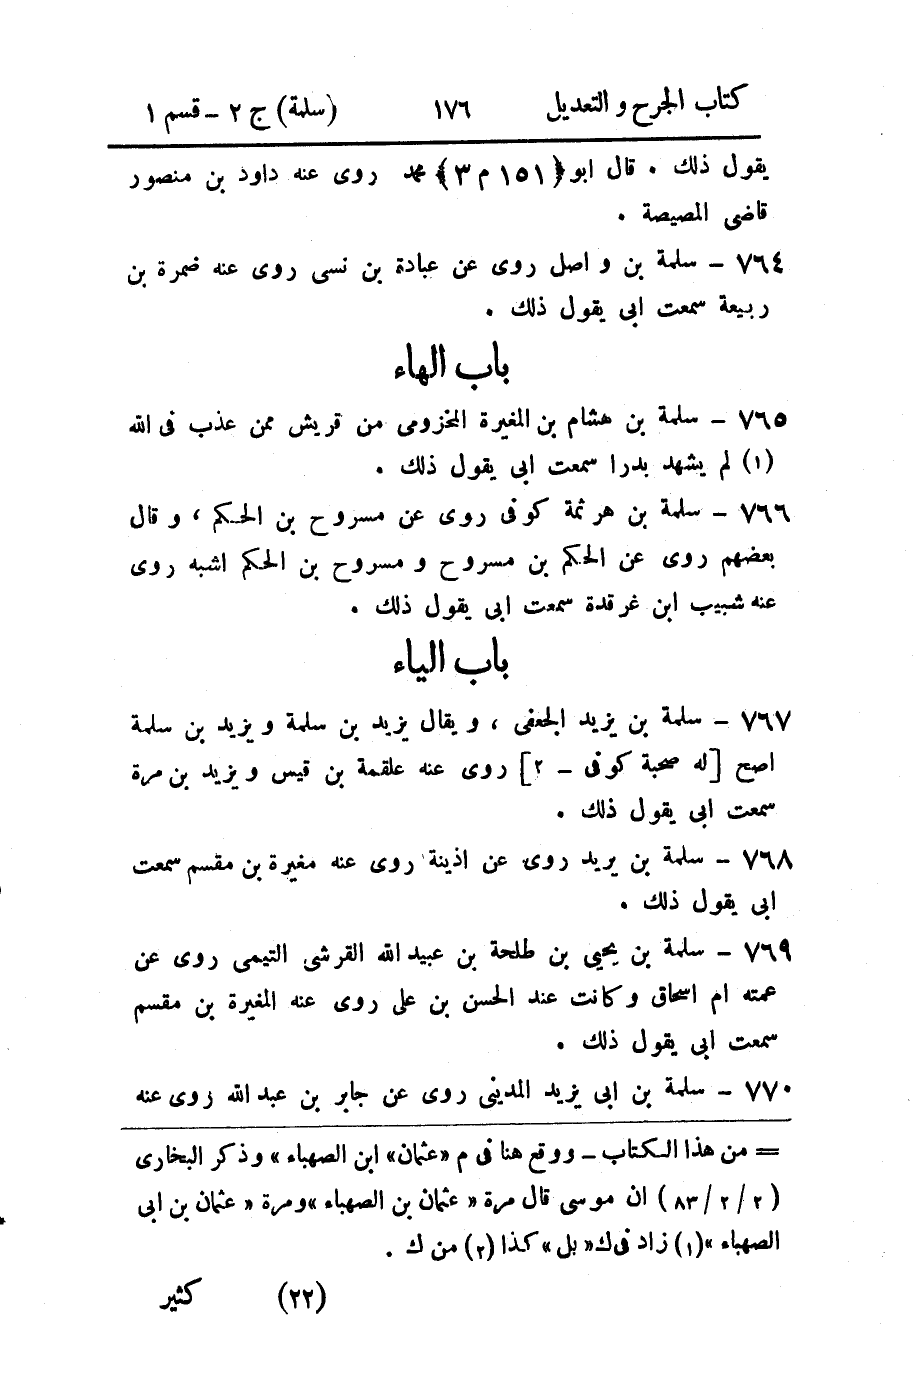 كتاب الجرح والتعديل ١٧٦ (سلمة) ج ٢ - قسم ١
يقول ذلك . قال ابو ﴿١٥١ م ٣﴾ محمد روى عنه داود بن منصور
قاضى المصيصة .
٧٦٤ - سلمة بن واصل روى عن عبادة بن نسى روى عنه ضمرة بن
ربيعة سمعت ابى يقول ذلك .
باب الهاء
٧٦٥ - سلمة بن هشام بن المغيرة المخزومى من قريش ممن عذب فى الله
(١) لم يشهد بدرا سمعت ابى يقول ذلك .
٧٦٦ - سلمة بن هرثمة كوفى روى عن مسروح بن الحكم ، وقال
بعضهم روى عن الحكم بن مسروح و مسروح بن الحكم اشبه روى
عنه شبيب ابن غرقدة سمعت ابى يقول ذلك .
باب الياء
٧٦٧ - سلمة بن يزيد الجعفى ، ويقال يزيد بن سلمة ويزيد بن سلمة
اصح [له صحبة كوفى - ٢] روى عنه علقمة بن قيس ويزيد بن مرة
سمعت ابى يقول ذلك .
٧٦٨ - سلمة بن يريد روى عن اذينة روى عنه مغيرة بن مقسم سمعت
ابى يقول ذلك .
٧٦٩ - سلمة بن يحيى بن طلحة بن عبيد الله القرشى التيمى روى عن
عمته ام اسحاق وكانت عند الحسن بن على روى عنه المغيرة بن مقسم
سمعت ابى يقول ذلك .
٧٧٠ - سلمة بن ابى يزيد المدينى روى عن جابر بن عبد الله روى عنه
= من هذا الكتاب - ووقع هنا فى م «عثمان» ابن الصهباء » وذكر البخارى
(٢ / ٢ / ٨٣) ان موسى قال مرة « عثمان بن الصهباء » ومرة « عثمان بن ابى
الصهباء » (١) زاد فى ك « بل » كذا (٢) من ك .
(٢٢) كثير